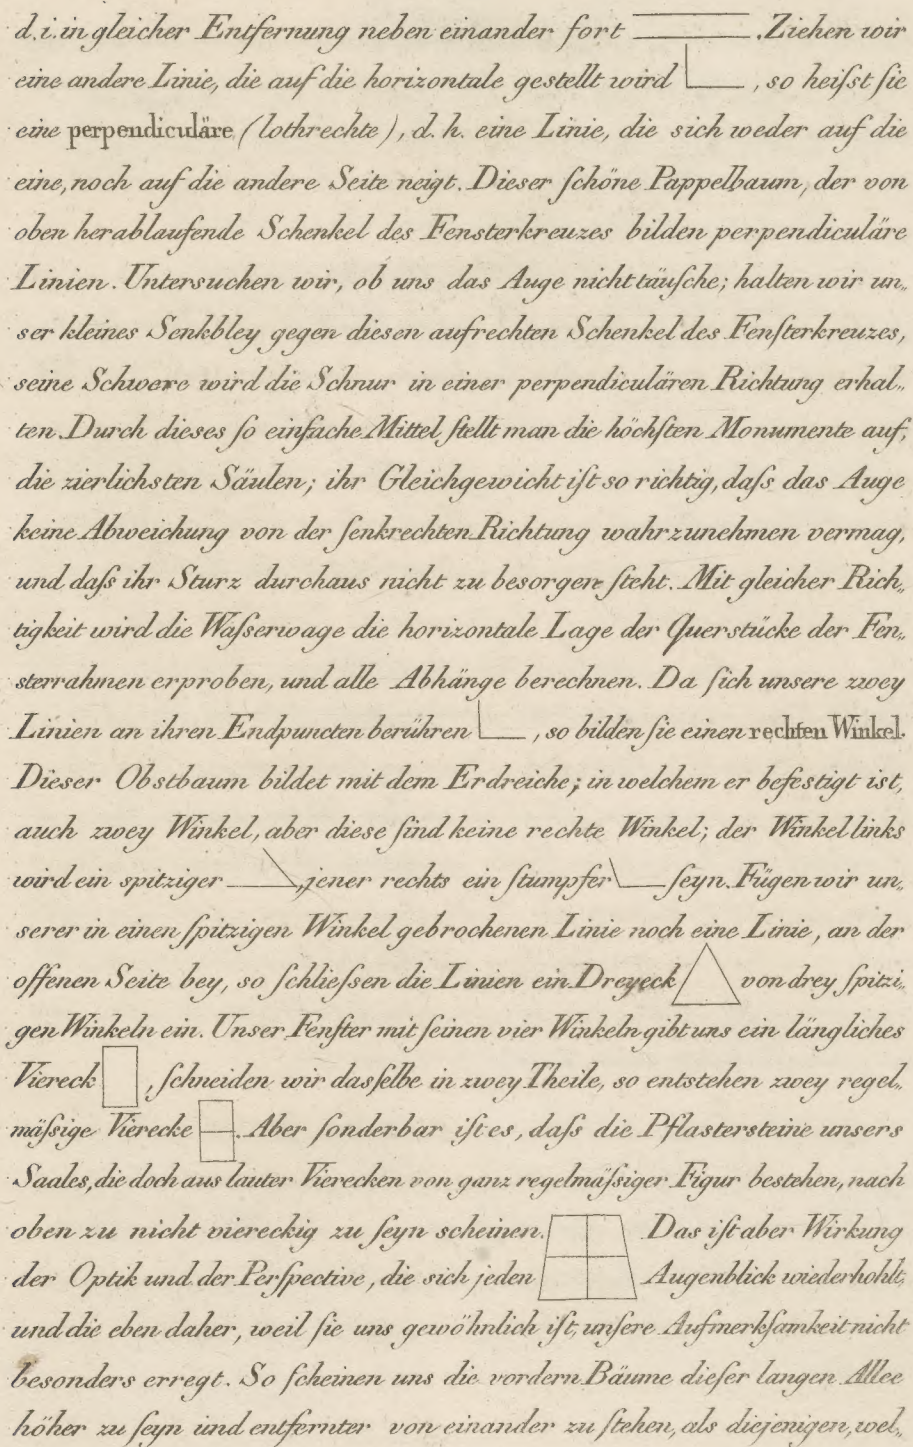 d. i. in gleicher Entfernung neben einander fort . Ziehen wir
eine andere Linie, die auf die horizontale gestellt wird , so heiſst ſie
eine perpendiculäre (lothrechte), d. h. eine Linie, die sich weder auf die
eine, noch auf die andere Seite neigt. Dieser ſchöne Pappelbaum, der von
oben herablaufende Schenkel des Fensterkreuzes bilden perpendiculäre
Linien. Untersuchen wir, ob uns das Auge nicht täuſche; halten wir un„
ser kleines Senkbley gegen diesen aufrechten Schenkel des Fenſterkreuzes,
seine Schwere wird die Schnur in einer perpendiculären Richtung erhal„
ten. Durch dieses ſo einfache Mittel ſtellt man die höchſten Monumente auf,
die zierlichsten Säulen; ihr Gleichgewicht iſt so richtig, daſs das Auge
keine Abweichung von der ſenkrechten Richtung wahrzunehmen vermag,
und daſs ihr Sturz durchaus nicht zu besorgen ſteht. Mit gleicher Rich„
tigkeit wird die Waſserwage die horizontale Lage der Querstücke der Fen„
sterrahmen erproben, und alle Abhänge berechnen. Da ſich unsere zwey
Linien an ihren Endpuncten berühren , so bilden ſie einen rechten Winkel.
Dieser Obstbaum bildet mit dem Erdreiche; in welchem er befestigt ist,
auch zwey Winkel, aber diese ſind keine rechte Winkel; der Winkel links
wird ein spitziger , jener rechts ein ſtumpfer ſeyn. Fügen wir un„
serer in einen ſpitzigen Winkel gebrochenen Linie noch eine Linie, an der
offenen Seite bey, so ſchlieſsen die Linien ein Dreyeck von drey ſpitzi„
gen Winkeln ein. Unser Fenſter mit ſeinen vier Winkeln gibt uns ein längliches
Viereck , ſchneiden wir dasſelbe in zwey Theile, so entstehen zwey regel„
mäſsige Vierecke . Aber ſonderbar iſt es, daſs die Pflastersteine unsers
Saales, die doch aus lauter Vierecken von ganz regelmäſsiger Figur bestehen, nach
oben zu nicht viereckig zu ſeyn scheinen. Das iſt aber Wirkung
der Optik und der Perſpective, die sich jeden Augenblick wiederhohlt,
und die eben daher, weil ſie uns gewöhnlich iſt, unſere Aufmerkſamkeit nicht
besonders erregt. So ſcheinen uns die vordern Bäume dieſer langen Allee
höher zu ſeyn und entfernter von einander zu ſtehen, als diejenigen, wel„